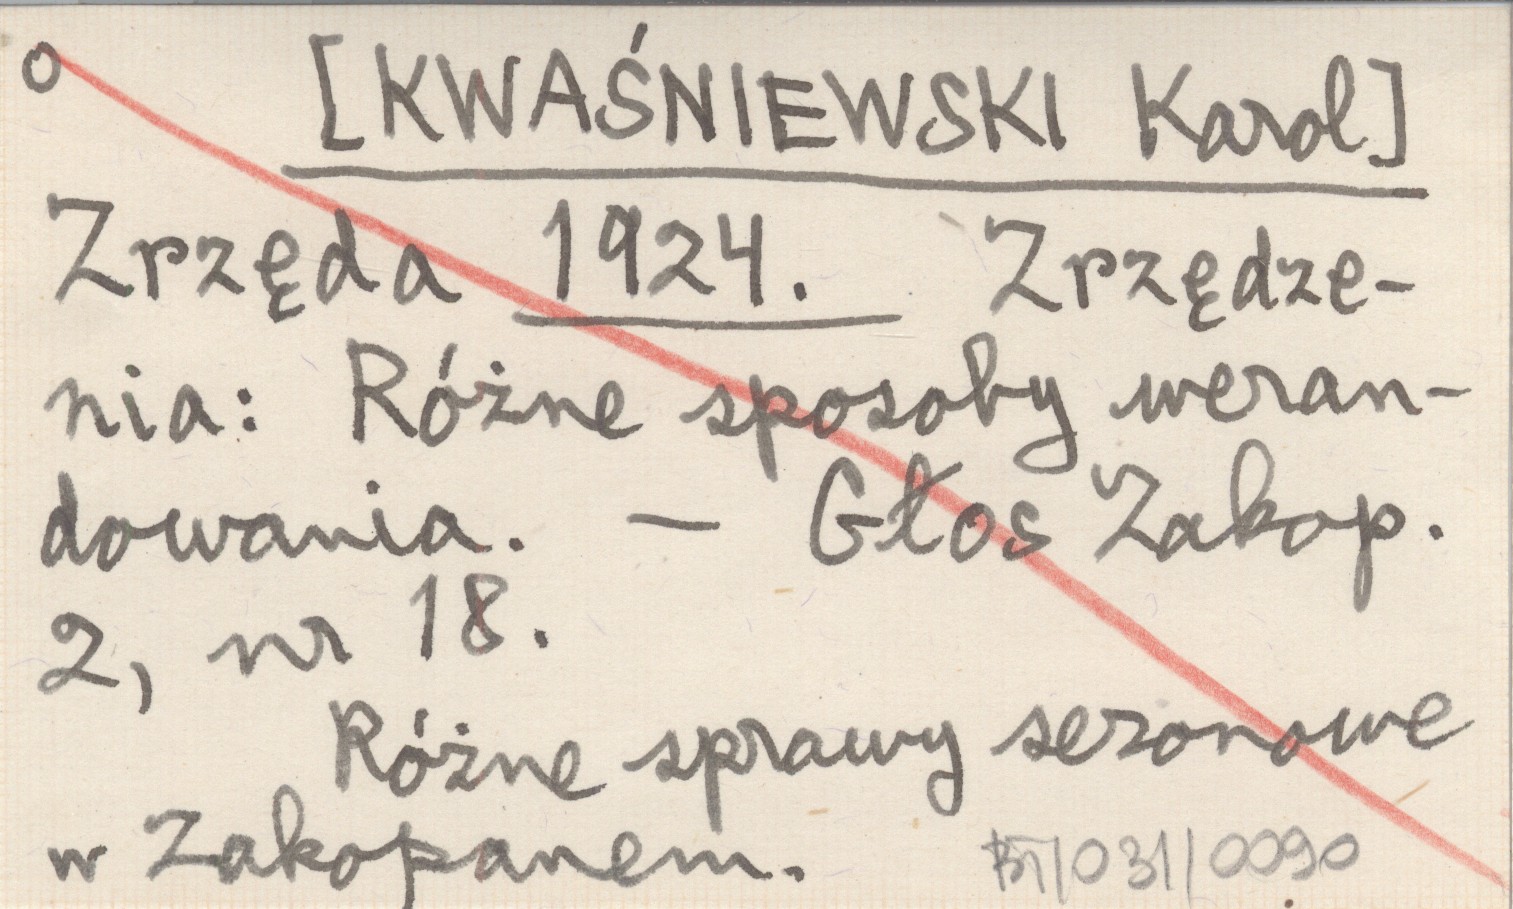 o [KWAŚNIEWSKI Karol]
Zrzęda 1924. Zrzędze-
nia: Różne sposoby weran-
dowania. — Głos Zakop.
2, nr 18.
Różne sprawy sezonowe
w Zakopanem.
BT/031/0090